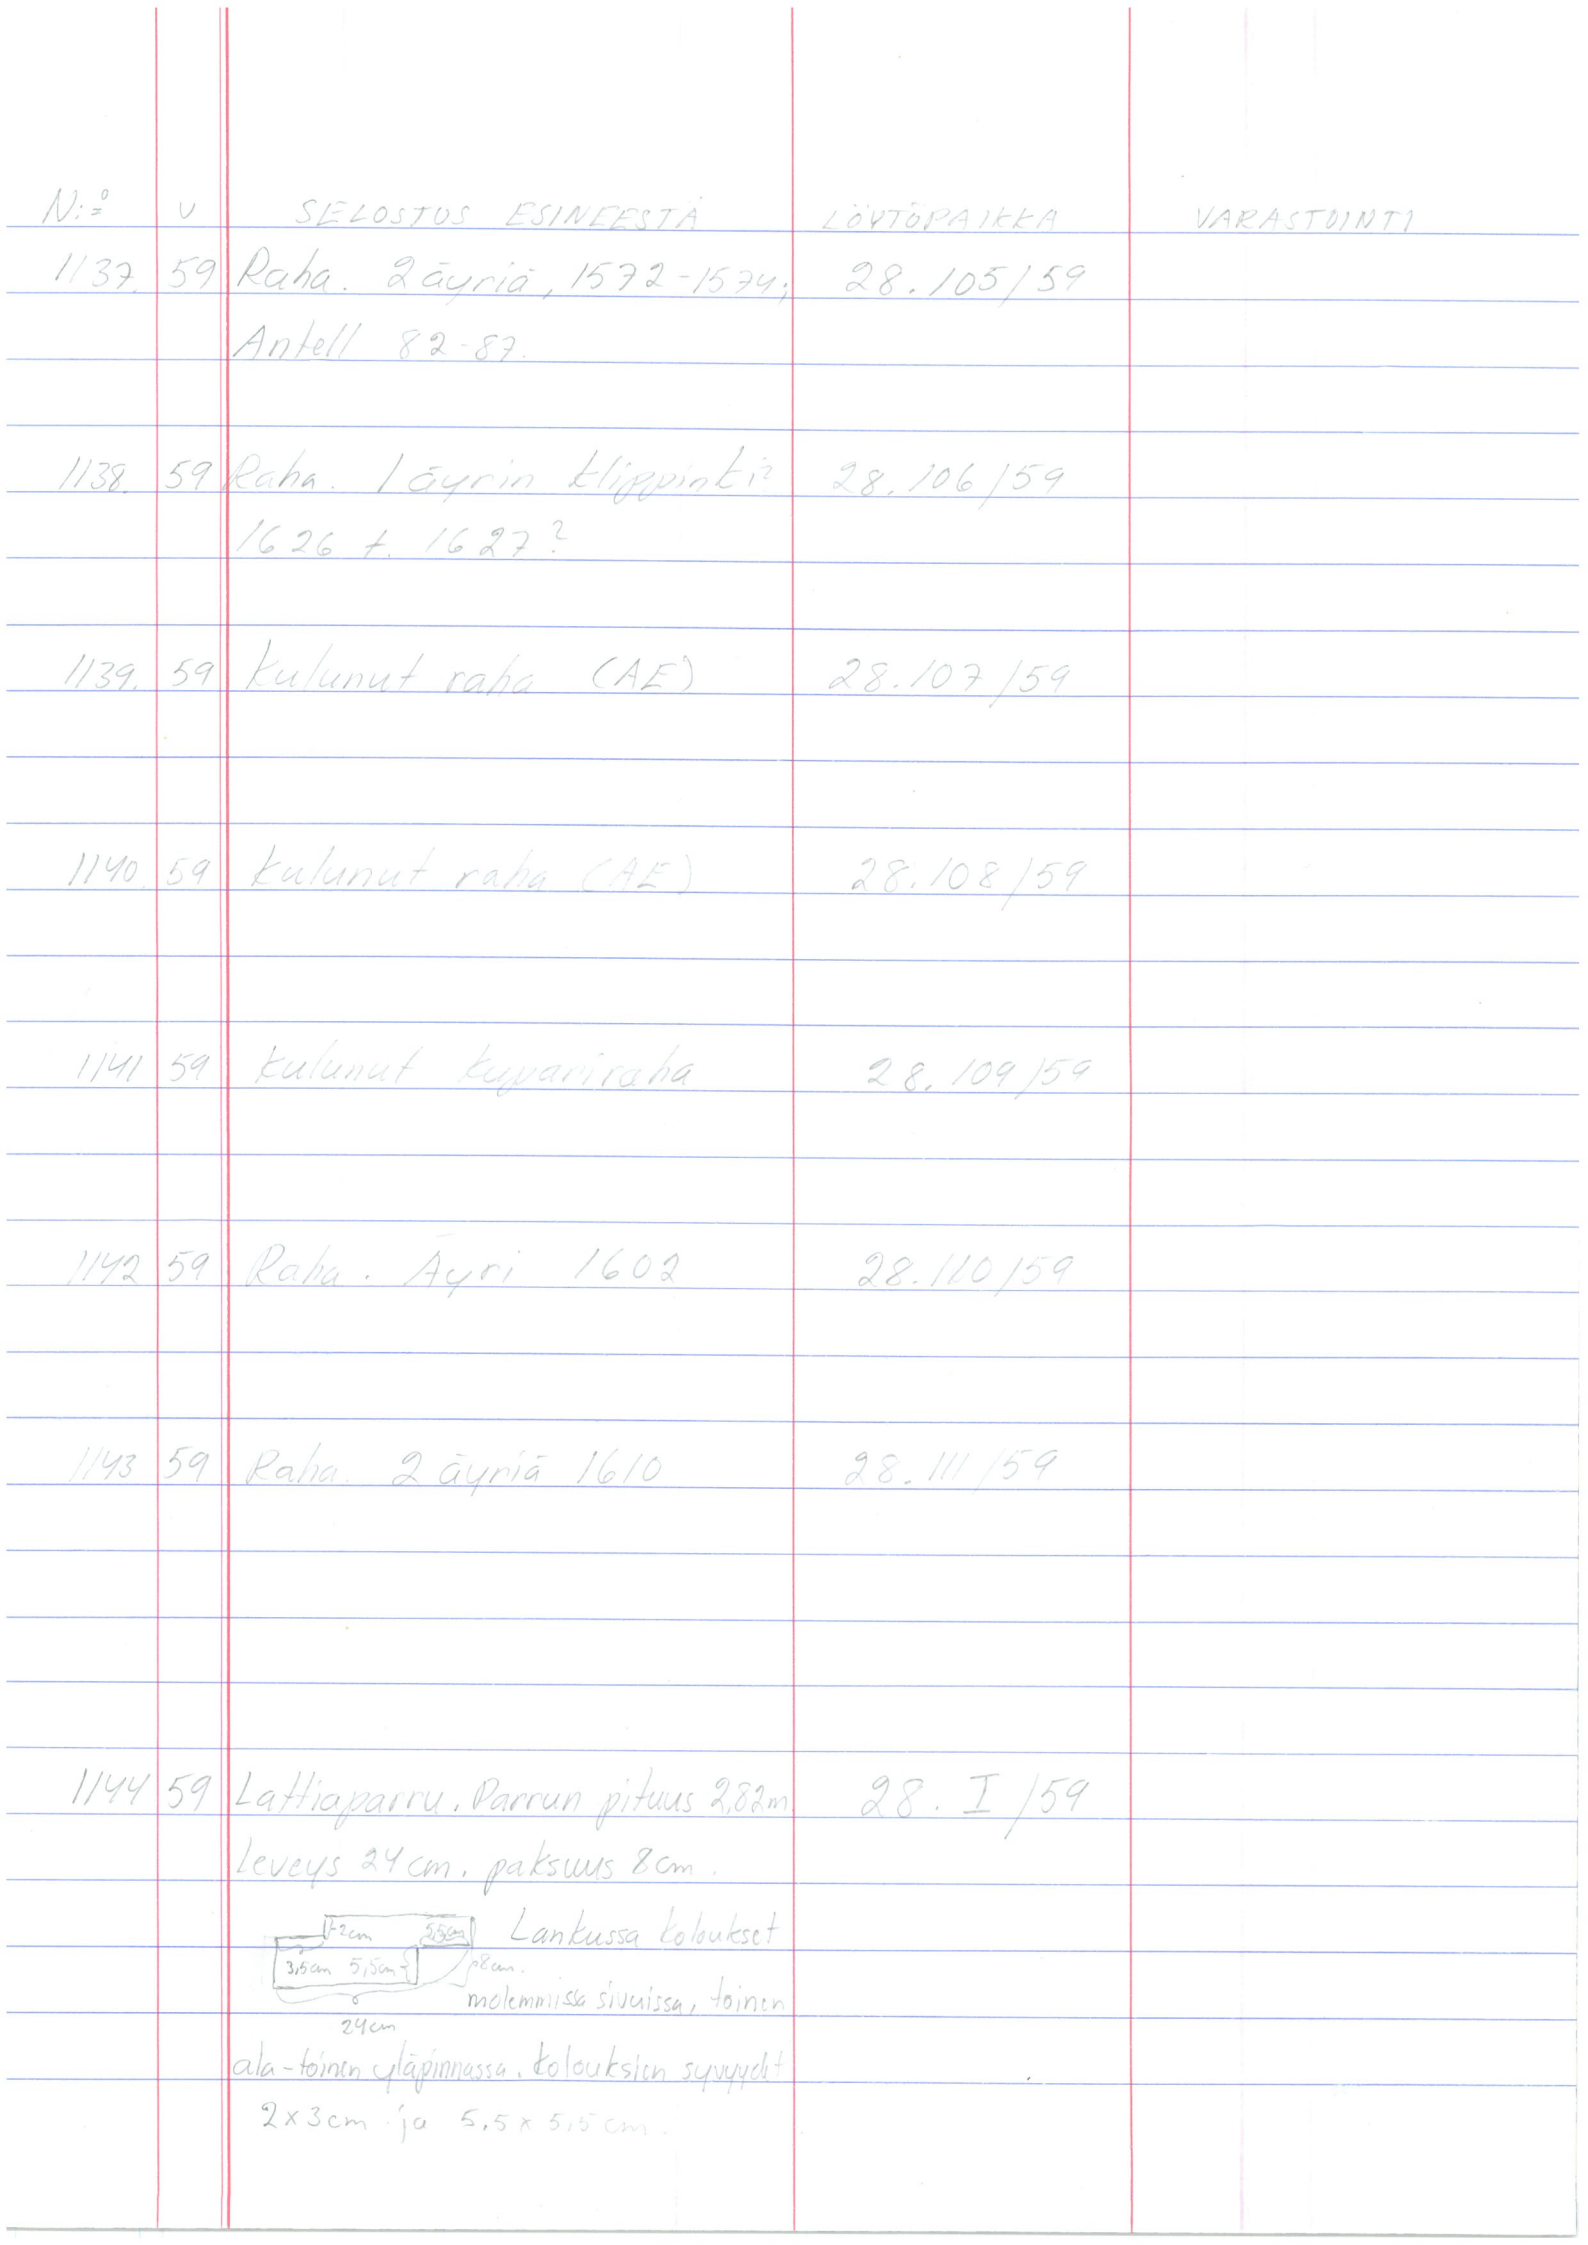 N:o v SELOSTUS ESINEESTÄ LÖYTÖPAIKKA VARASTOINTI
1137. 59 Raha. 2 äyriä, 1572-1574; 28.105/59
Antell 82-87.
1138. 59 Raha. 1 äyrin klippinki? 28.106/59
1626 t. 1627?
1139. 59 Kulunut raha (AE) 28.107/59
1140. 59 Kulunut raha (AE) 28.108/59
1141 59 Kulunut kupariraha 28.109/59
1142 59 Raha. Äyri 1602 28.110/59
1143 59 Raha. 2 äyriä 1610 28.111/59
1144 59 Lattiaparru. Parrun pituus 2,82m 28. I /59
Leveys 24cm. paksuus 8cm.
2cm 5,5cm Lankussa koloukset
3,5cm 5,5cm 8cm.
molemmissa sivuissa, toinen
24cm
ala-toinen yläpinnassa. Kolouksien syvyydet
2x3cm ja 5,5x5,5cm.